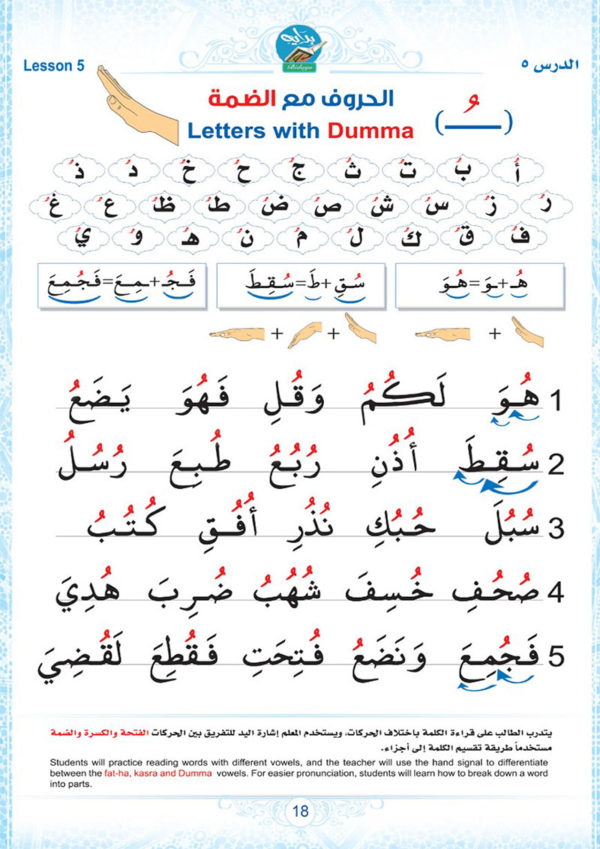 بداية
Lesson 5
الدرس ٥
الحروف مع الضمة
Letters with Dumma
( ـُ )
أُ بُ تُ ثُ جُ حُ خُ دُ ذُ
رُ زُ سُ شُ صُ ضُ طُ ظُ عُ غُ
فُ قُ كُ لُ مُ نُ هُـ وُ يُ
هُـ+ـوَ=هُوَ
سُقِ+طَ=سُقِطَ
فَجُـ+ـمِعَ=فَجُمِعَ
+
+ +
1 هُوَ لَكُمُ وَقُلِ فَهُوَ يَضَعُ
2 سُقِطَ أُذُنِ رُبُعُ طُبِعَ رُسُلُ
3 سُبُلَ حُبُكِ نُذُرِ أُفُقِ كُتُبُ
4 صُحُفِ خُسِفَ شُهُبُ ضُرِبَ هُدِيَ
5 فَجُمِعَ وَنَضَعُ فُتِحَتِ فَقُطِعَ لَقُضِيَ
يتدرب الطالب على قراءة الكلمة باختلاف الحركات، ويستخدم المعلم إشارة اليد للتفريق بين الحركات الفتحة والكسرة والضمة
مستخدماً طريقة تقسيم الكلمة إلى أجزاء.
Students will practice reading words with different vowels, and the teacher will use the hand signal to differentiate
between the fat-ha, kasra and Dumma vowels. For easier pronunciation, students will learn how to break down a word
into parts.
18